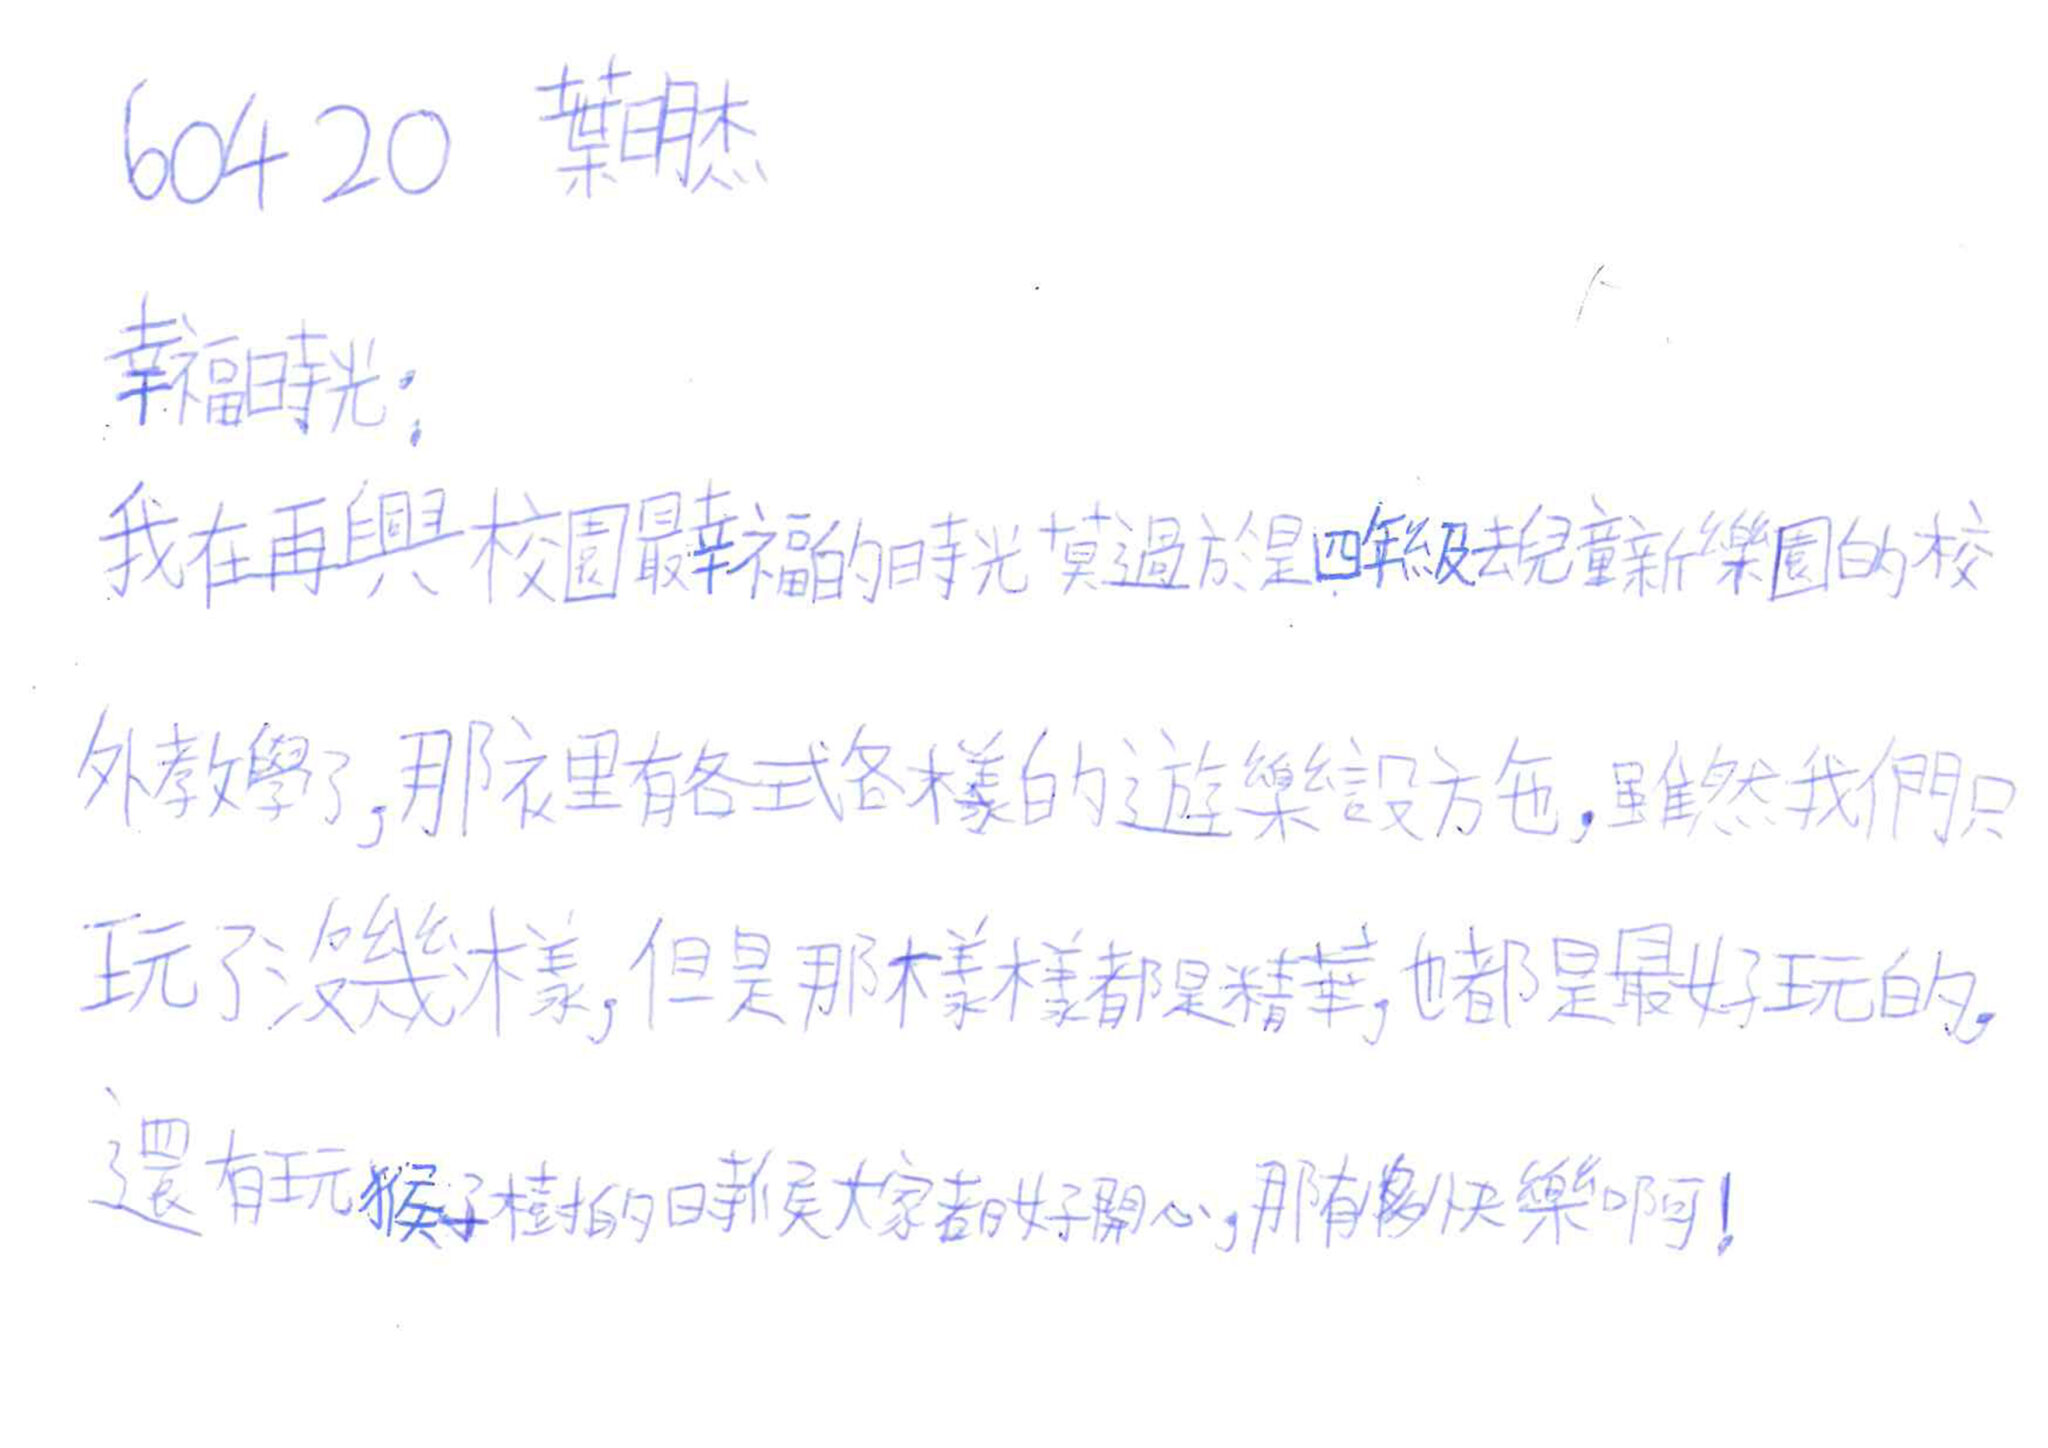 60420 葉明杰
幸福時光：
我在再興校園最幸福的時光莫過於是四年級去兒童新樂園的校
外教學了，那裡有各式各樣的遊樂設施，雖然我們只
玩了沒幾樣，但是那樣樣都是精華，也都是最好玩的。
還有玩猴子樹的時候大家都好開心，那有多快樂啊！